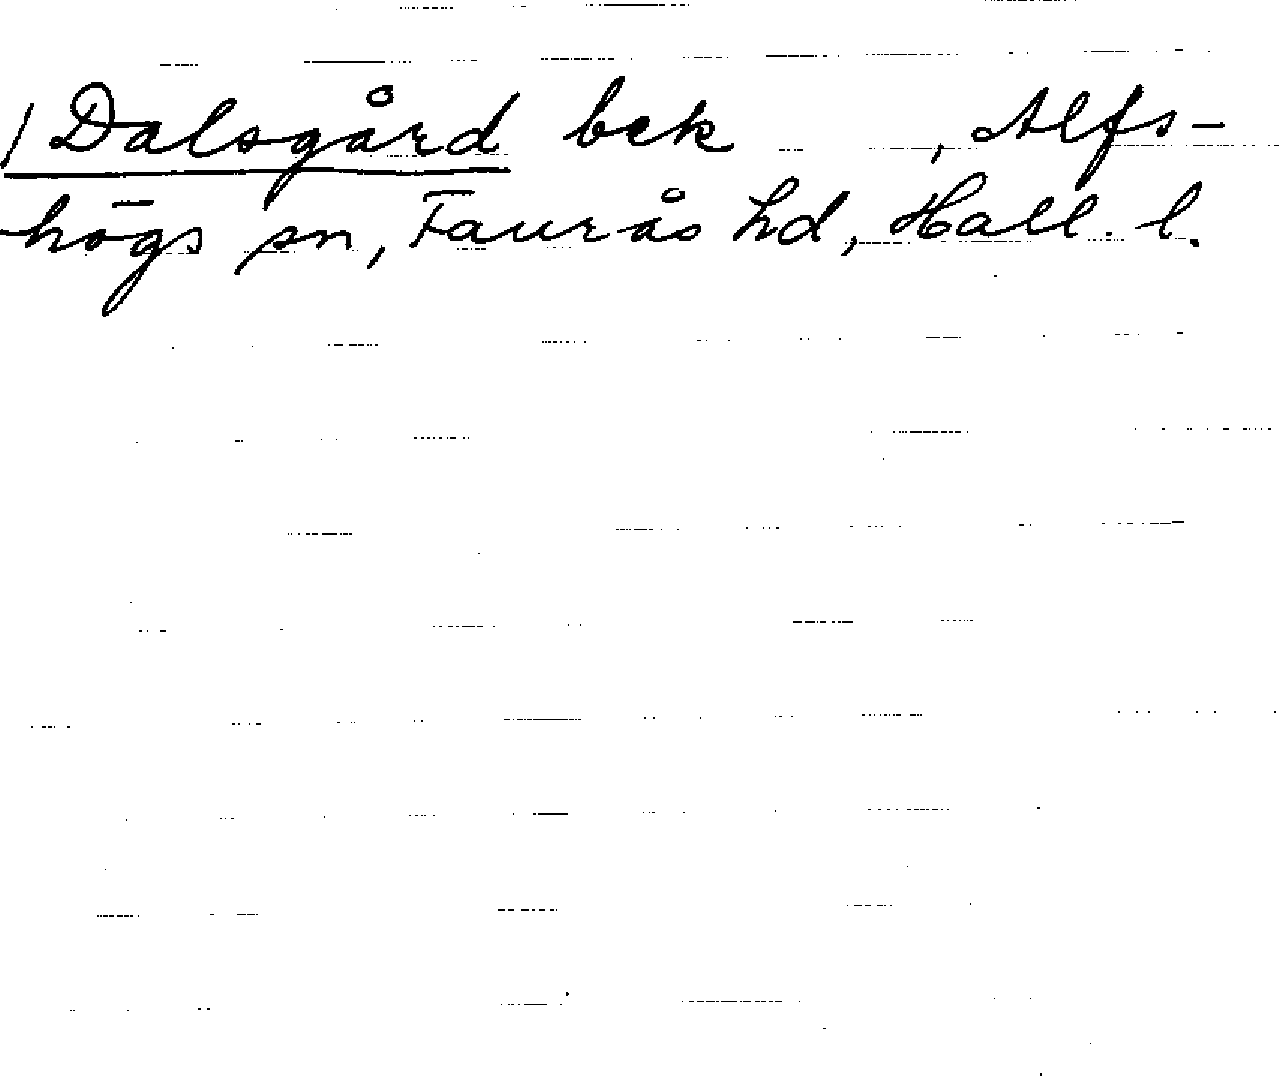 / Dalsgård bek , Alfs-
högs sn, Faurås hd, Hall. l.